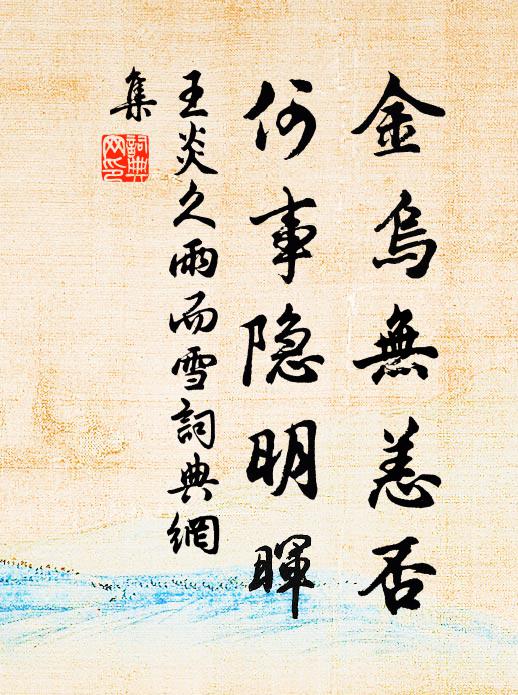 金烏無恙否
何事隐明暉
王炎久雨而雪詞典網
集
詞典网印